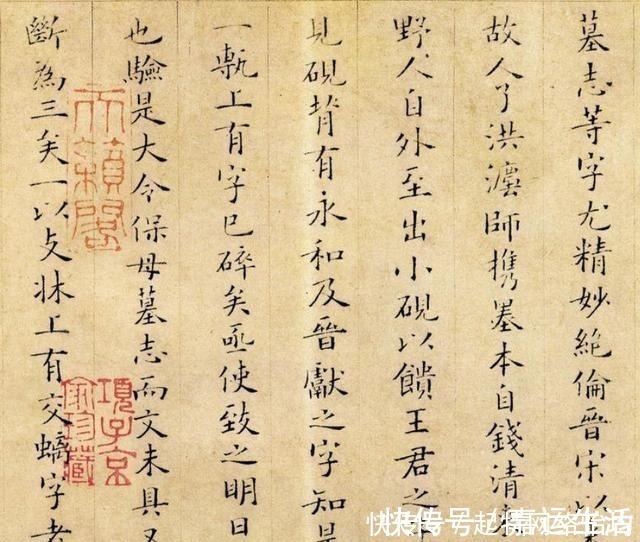 墓志等字尤精妙絕倫晉宋以
故人了洪瀍師携墨本自錢清
野人自外至出小硯以饋王君之
見硯背有永和及晉獻之字知是
一甎上有字已碎矣亟使致之明日
也驗是大令保母墓志而文未具又
斷為三矣一以支牀上有交螭字者
天籟閣
項子京家珍藏
快传号/嘉运生活